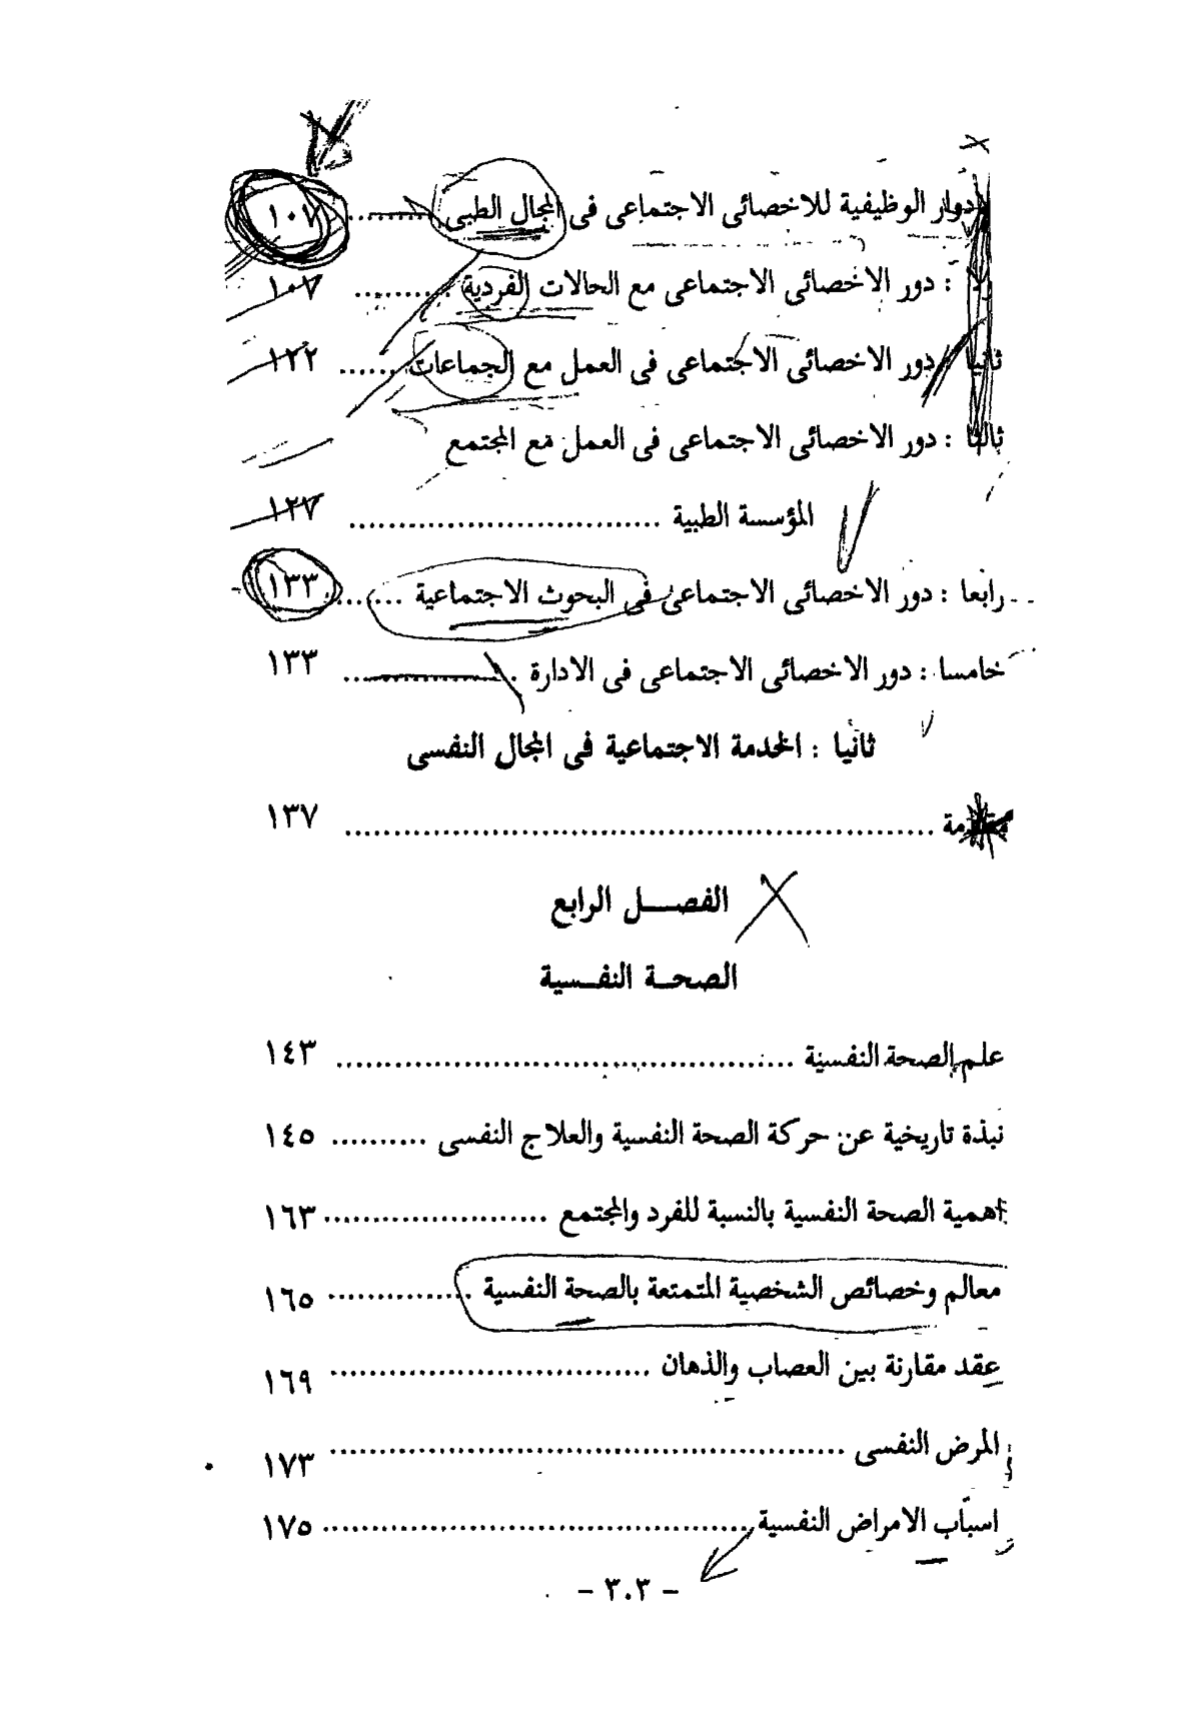 الادوار الوظيفية للاخصائى الاجتماعى فى المجال الطبى ......... ١٠٧
اولا : دور الاخصائى الاجتماعى مع الحالات الفردية ......... ١٠٧
ثانيا : دور الاخصائى الاجتماعى فى العمل مع الجماعات ...... ١٢٢
ثالثا : دور الاخصائى الاجتماعى فى العمل مع المجتمع
المؤسسة الطبية ................................ ١٢٧
رابعا : دور الاخصائى الاجتماعى فى البحوث الاجتماعية ........ ١٣٣
خامسا : دور الاخصائى الاجتماعى فى الادارة .................. ١٣٣
ثانيا : الخدمة الاجتماعية فى المجال النفسى
مقدمة ............................................................ ١٣٧
الفصـــل الرابع
الصحـة النفـسية
علم الصحة النفسية ............................................... ١٤٣
نبذة تاريخية عن حركة الصحة النفسية والعلاج النفسى .......... ١٤٥
اهمية الصحة النفسية بالنسبة للفرد والمجتمع ....................... ١٦٣
معالم وخصائص الشخصية المتمتعة بالصحة النفسية ............... ١٦٥
عقد مقارنة بين العصاب والذهان ................................. ١٦٩
المرض النفسى ..................................................... ١٧٣
اسباب الامراض النفسية ............................................ ١٧٥
– ٣٠٣ –